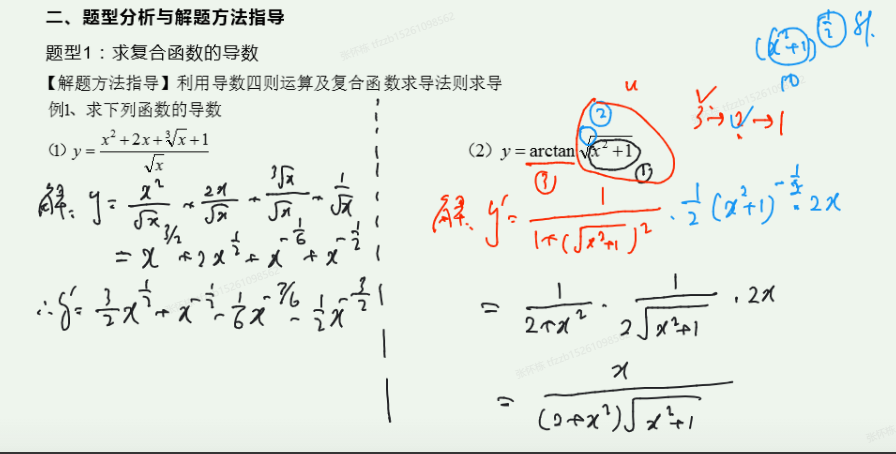 二、题型分析与解题方法指导
题型1：求复合函数的导数
【解题方法指导】利用导数四则运算及复合函数求导法则求导
例1、求下列函数的导数
(1) y = (x² + 2x + ∛x + 1)/√x
解: y = x²/√x + 2x/√x + ∛x/√x + 1/√x
= x^(3/2) + 2x^(1/2) + x^(-1/6) + x^(-1/2)
∴ y' = 3/2 x^(1/2) + x^(-1/2) - 1/6 x^(-7/6) - 1/2 x^(-3/2)
(x²+1)^(1/2)
u
3→2→1
(2) y = arctan √(x² + 1)
② ① ③
解: y' = 1/(1+(√(x²+1))²) · 1/2 (x²+1)^(-1/2) · 2x
= 1/(2+x²) · 1/(2√(x²+1)) · 2x
= x/((2+x²)√(x²+1))